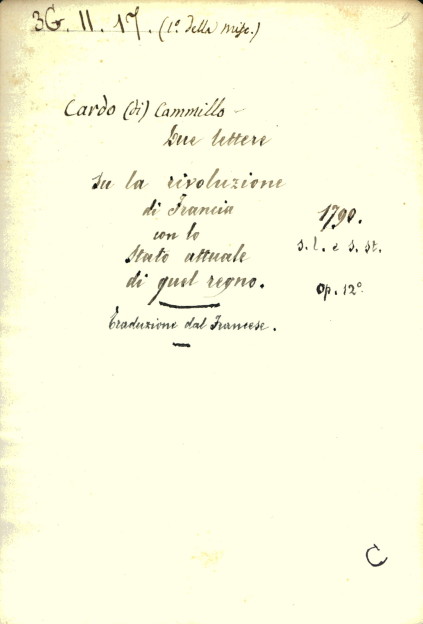 3G. II. 17. (1º. della misc.)
Cardo (di) Cammillo -
Due lettere
su la rivoluzione
di Francia
1790.
con lo
s. l. e s. st.
stato attuale
di quel regno.
op. 12º
Traduzione dal Francese.
C